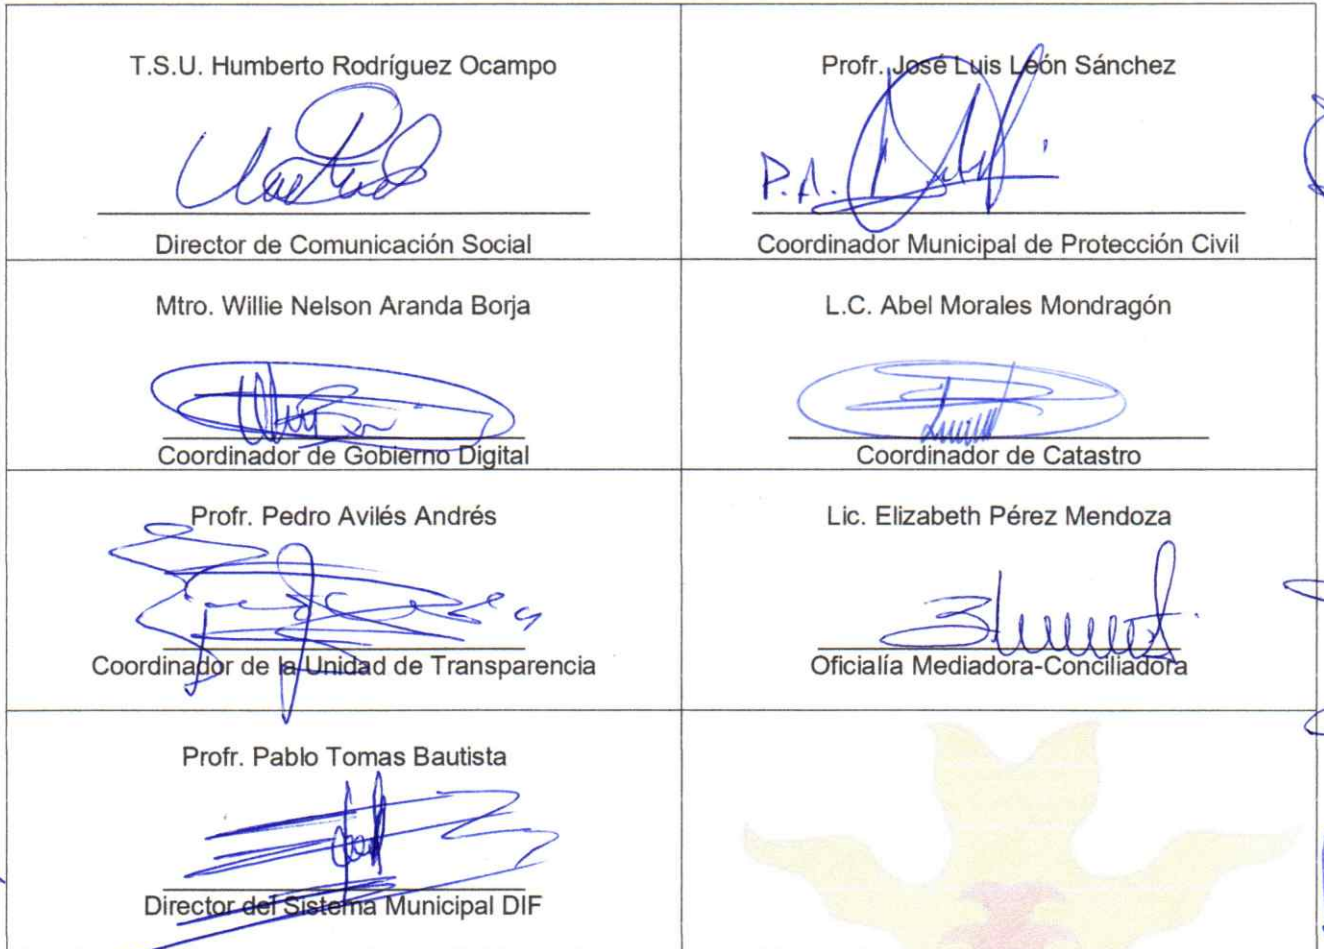 T.S.U. Humberto Rodríguez Ocampo
Director de Comunicación Social
Profr. José Luis León Sánchez
P.A.
Coordinador Municipal de Protección Civil
Mtro. Willie Nelson Aranda Borja
Coordinador de Gobierno Digital
L.C. Abel Morales Mondragón
Coordinador de Catastro
Profr. Pedro Avilés Andrés
Coordinador de la Unidad de Transparencia
Lic. Elizabeth Pérez Mendoza
Oficialía Mediadora-Conciliadora
Profr. Pablo Tomas Bautista
Director del Sistema Municipal DIF